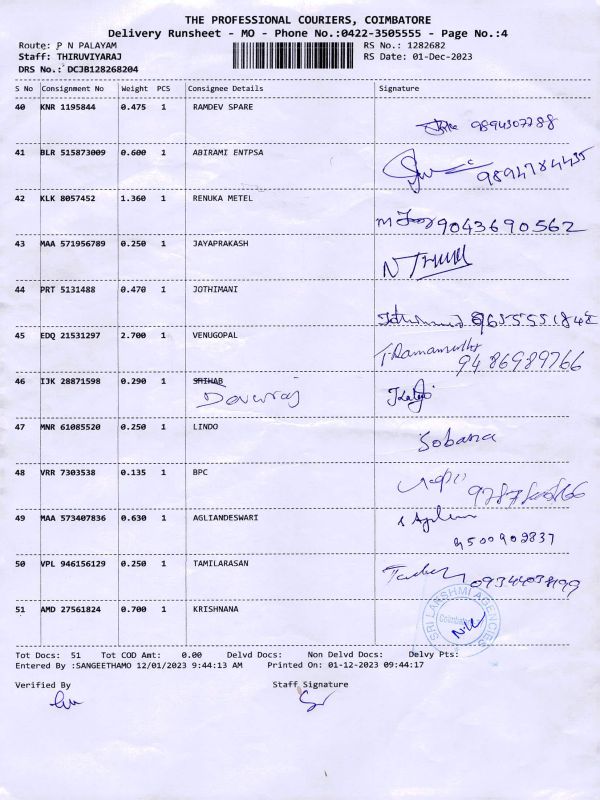 THE PROFESSIONAL COURIERS, COIMBATORE
Delivery Runsheet - MO - Phone No.:0422-3505555 - Page No.:4
Route: P N PALAYAM RS No.: 1282682
Staff: THIRUVIYARAJ RS Date: 01-Dec-2023
DRS No.: DCJB128268204
S No Consignment No Weight PCS Consignee Details Signature
40 KNR 1195844 0.475 1 RAMDEV SPARE
9894307288
41 BLR 515873009 0.600 1 ABIRAMI ENTPSA
9894784435
42 KLK 8057452 1.360 1 RENUKA METEL
9043690562
43 MAA 571956789 0.250 1 JAYAPRAKASH
44 PRT 5131488 0.470 1 JOTHIMANI
9655551848
45 EDQ 21531297 2.700 1 VENUGOPAL
T. Ramamurthy
9486989766
46 IJK 28871598 0.290 1 SRIHAB
Devaraj
47 MNR 61085520 0.250 1 LINDO
Sobana
48 VRR 7303538 0.135 1 BPC
49 MAA 573407836 0.630 1 AGLIANDESWARI
9500902837
50 VPL 946156129 0.250 1 TAMILARASAN
51 AMD 27561824 0.700 1 KRISHNANA
SRI LAKSHMI AGENCIES
Tot Docs: 51 Tot COD Amt: 0.00 Delvd Docs: Non Delvd Docs: Delvy Pts:
Entered By :SANGEETHAMO 12/01/2023 9:44:13 AM Printed On: 01-12-2023 09:44:17
Verified By Staff Signature